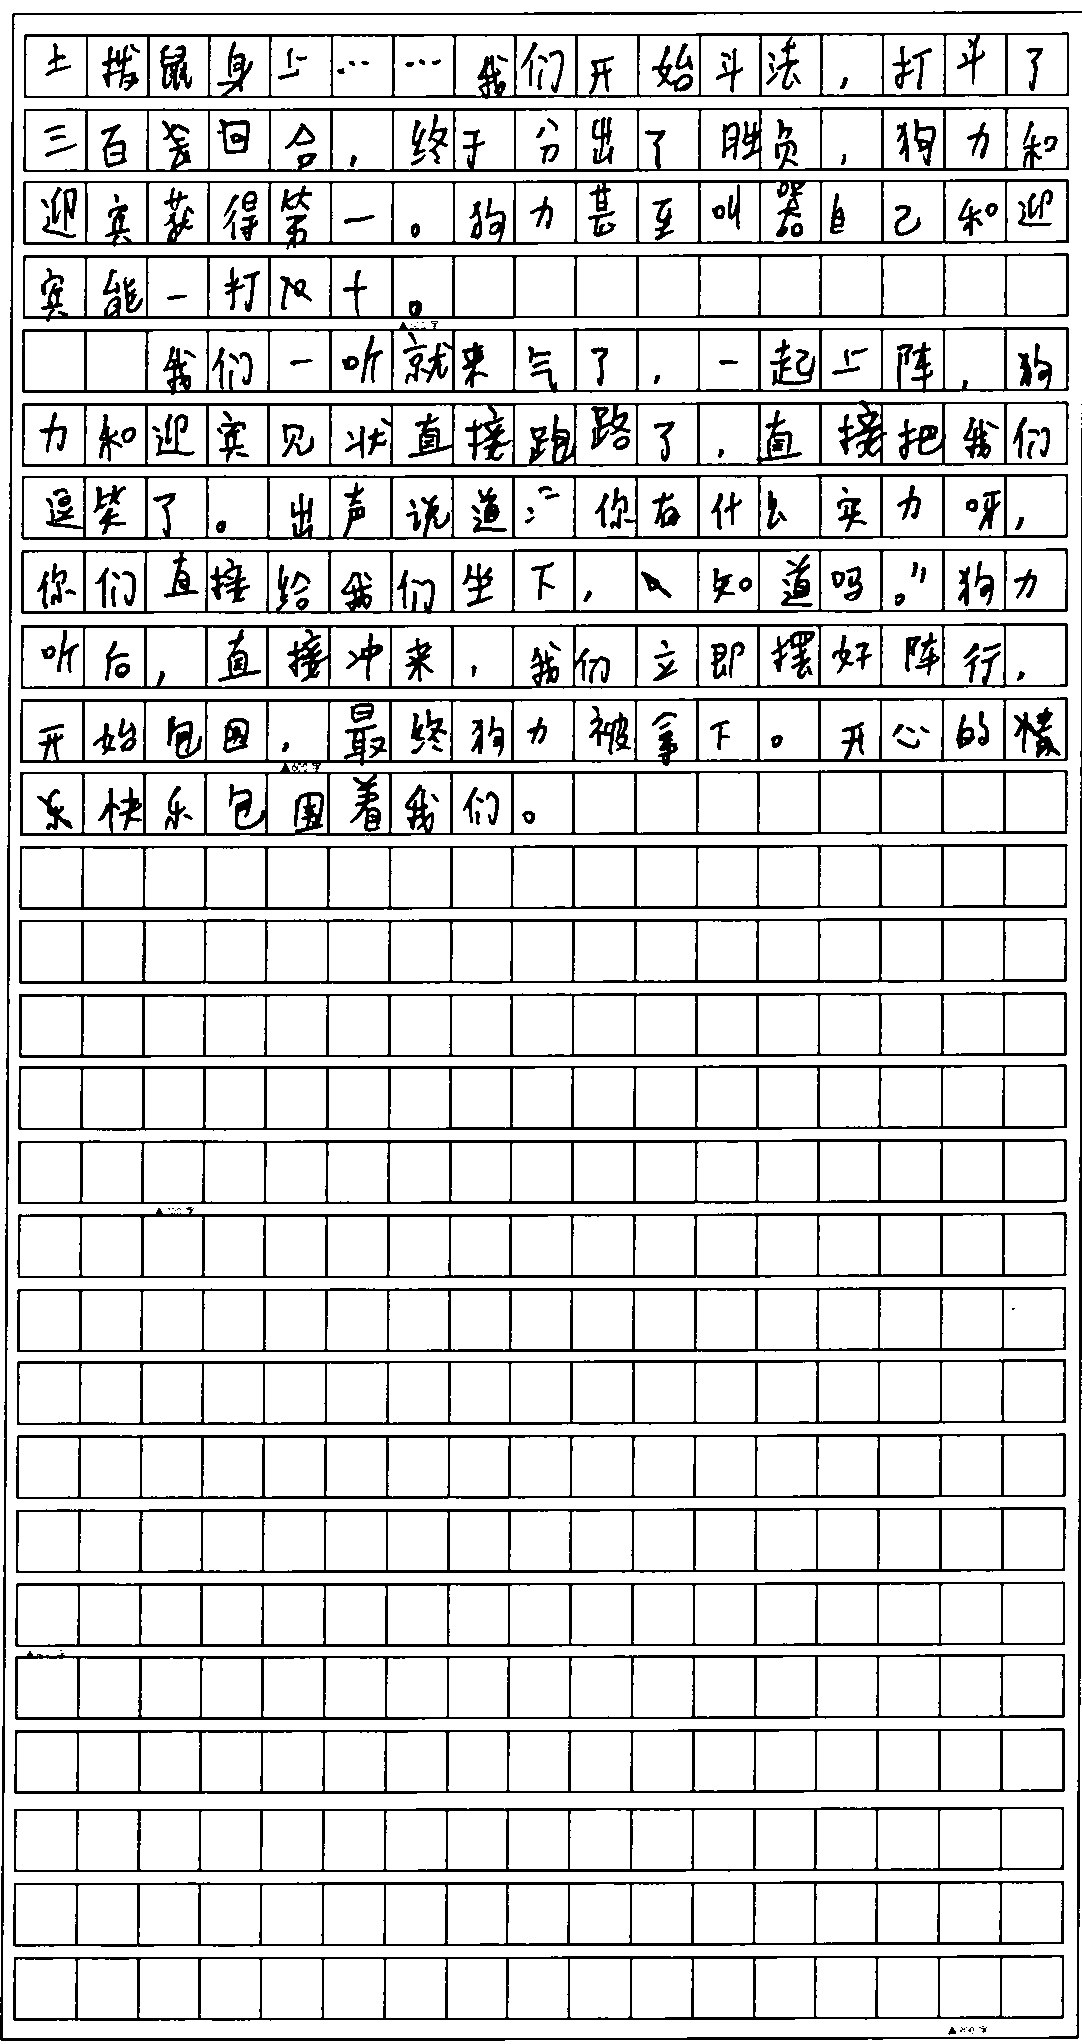 土拨鼠身上……我们开始斗法，打斗了
三百多回合，终于分出了胜负，狗力和
迎宾获得第一。狗力甚至叫嚣自己和迎
宾能一打八十。
我们一听就来气了，一起上阵，狗
力和迎宾见状直接跑路了，直接把我们
逗笑了。出声说道：“你有什么实力呀，
你们直接给我们坐下，知道吗。”狗力
听后，直接冲来，我们立即摆好阵行，
开始包围，最终狗力被拿下。开心的情
乐快乐包围着我们。